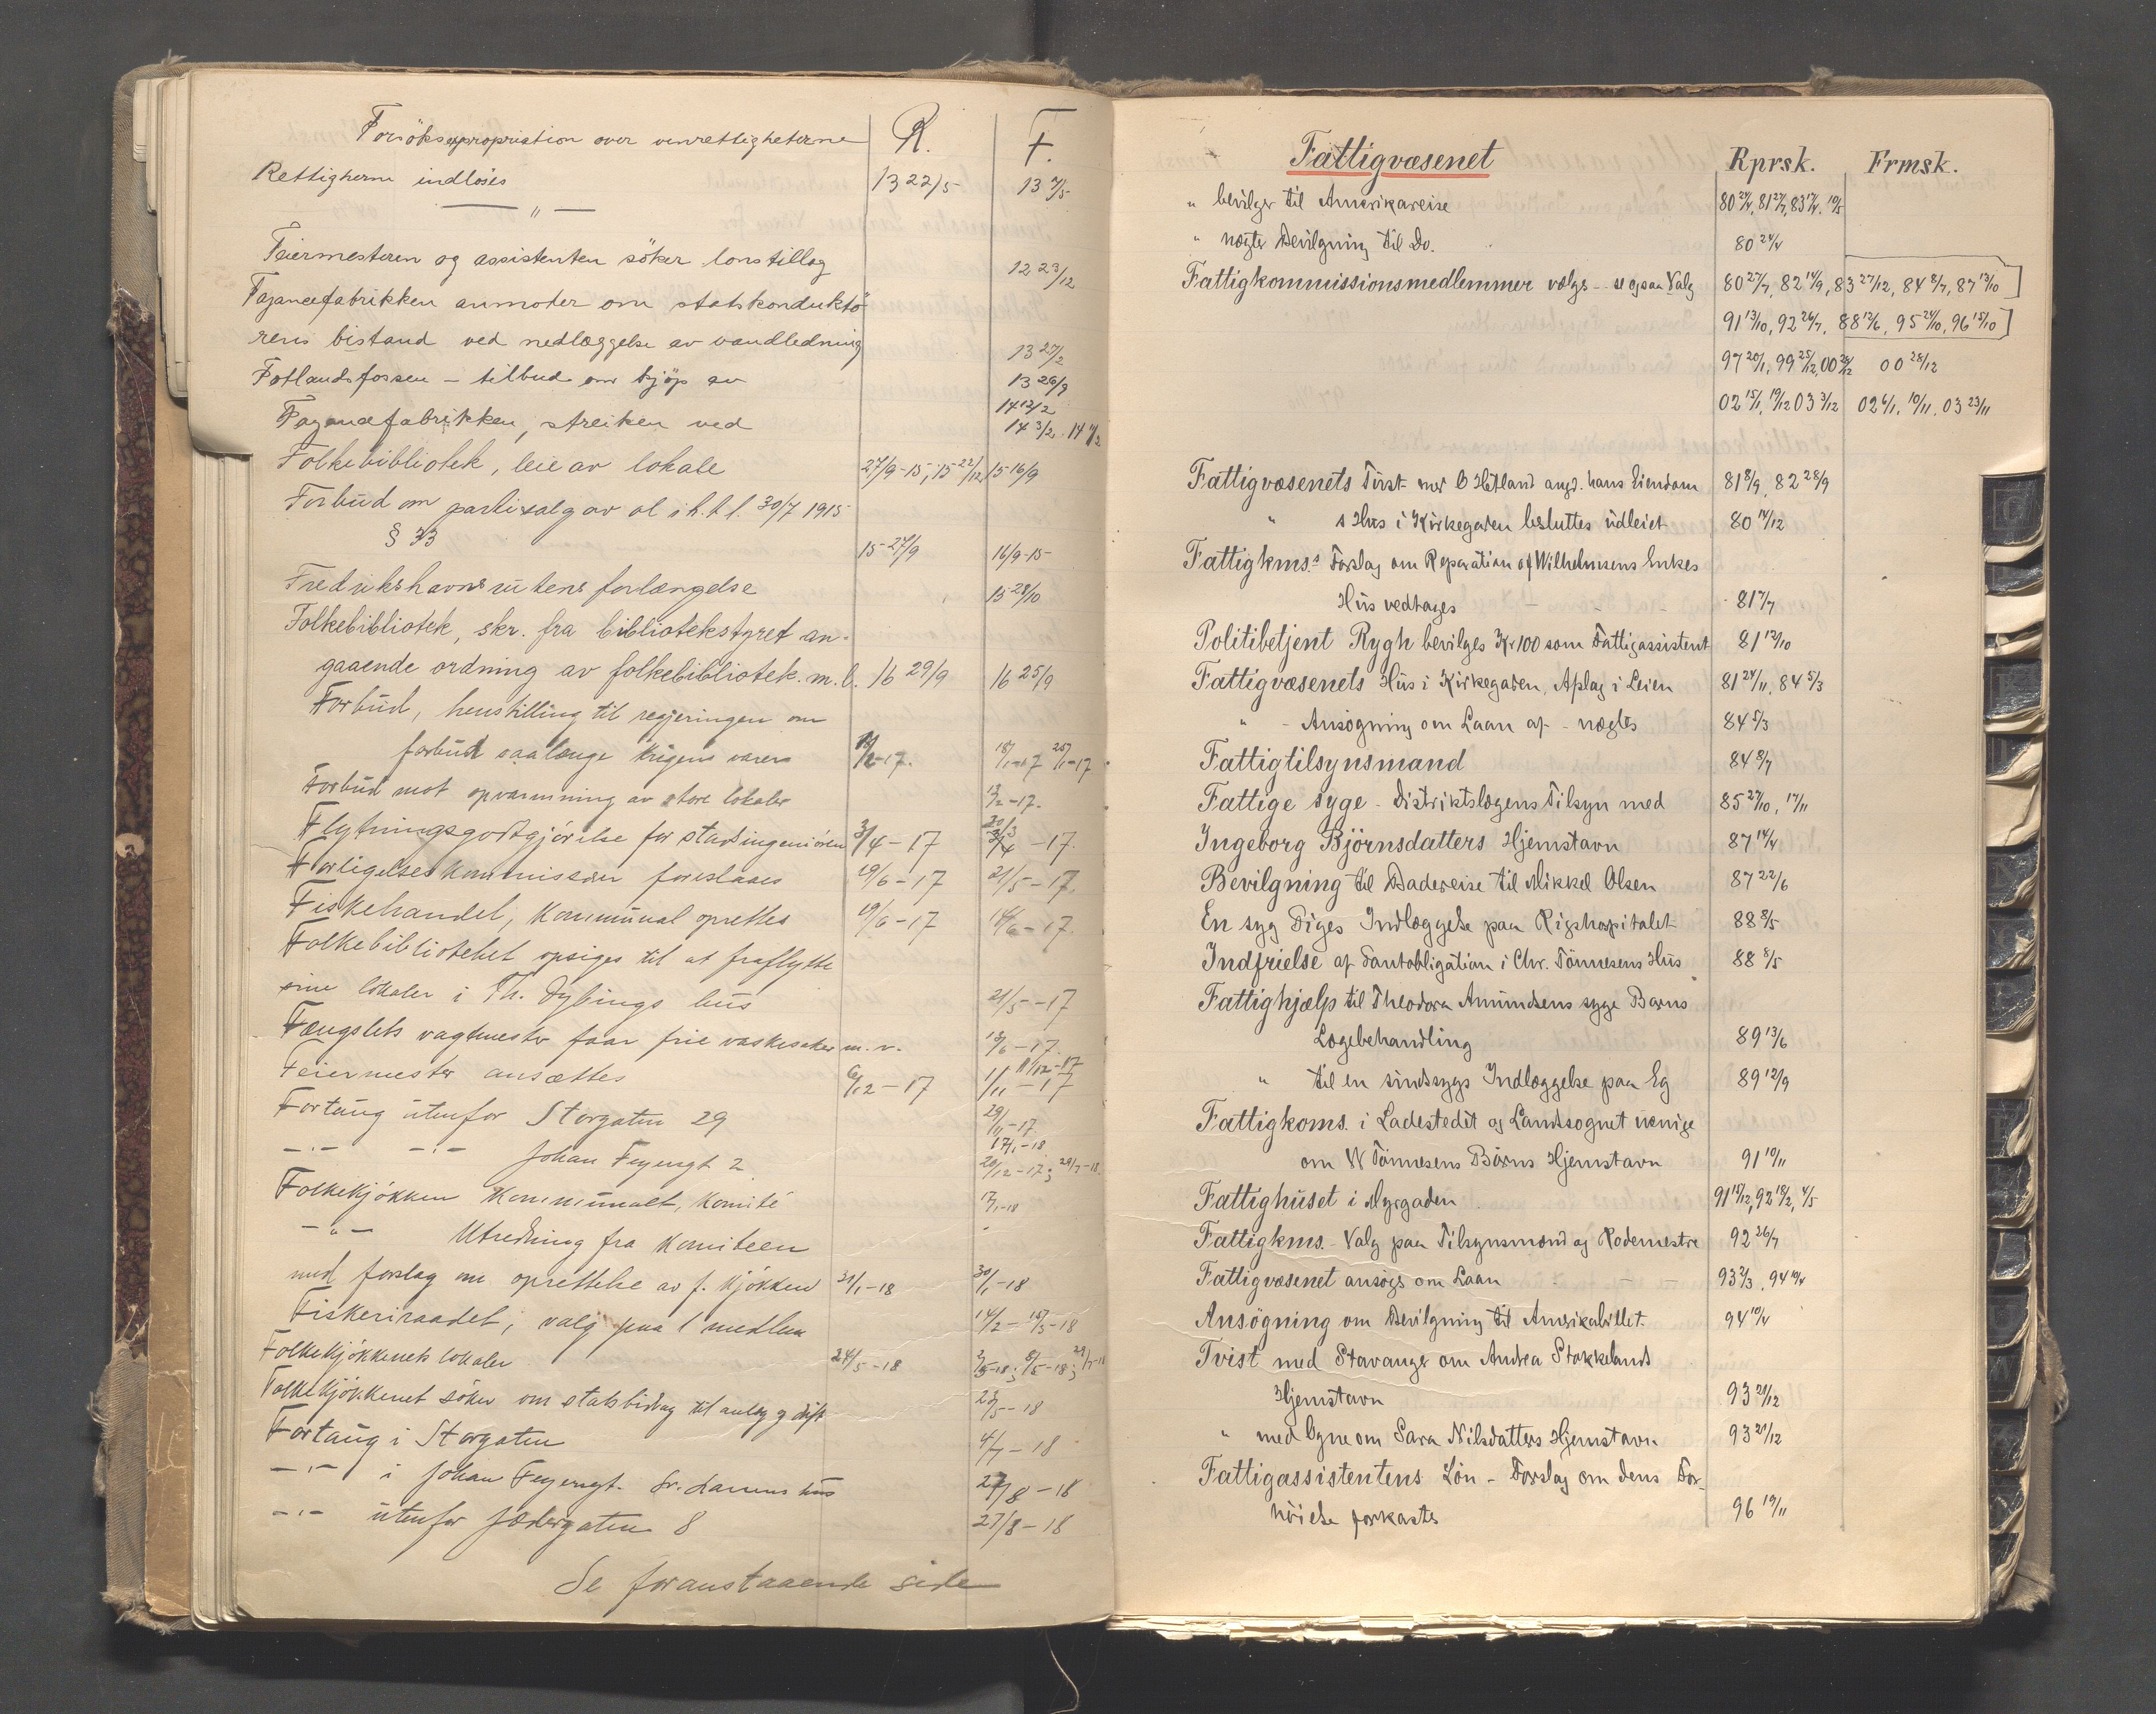 Forsöksexpropriation over vinrettigheterne R. F.
Rettigherne indløses 13 22/5 13 7/5
— " —
Feiermesteren og assistenten söker lønstillæg 12 23/12
Fajancefabrikken anmoder om statskonduktö
rens bistand ved nedlæggelse av vandledning 13 27/2
Fotlandsfossen – tilbud om kjöp av 13 26/9
14 12/2
Fajancefabrikken, streiken ved 14 3/2 14 7/2
Folkebibliotek, leie av lokale 27/9-15, 15 22/12 15 16/9
Forbud om partisalg av øl i h. t. l. 30/7 1915
§ 33 15 27/9 16/9-15
Fredrikshavnsrutens forlængelse 15 28/10
Folkebibliotek, skr. fra bibliotekstyret an-
gaaende ordning av folkebibliotek. m. l. 16 29/9 16 25/9
Forbud, henstilling til regjeringen om
forbud saalænge krigen varer /2-17. 18/1-17 25/1-17
Forbud mot opvarmning av store lokaler /2-17.
Flytningsgodtgjörelse for stadsingeniören 3/4-17 20/3 -17.
Forligelseskommissær foreslaaes 19/6-17 21/5-17.
Fiskehandel, kommunal oprettes 19/6-17 14/6-17.
Folkebiblioteket opsiges til at fraflytte
sine lokaler i Th. Dybings hus 21/5-17
Fængslets vagtmester faar frie vaskesaker m. v. /6-17.
11/12-17
Feiermester ansættes 6/12-17 1/11-17
Fortaug utenfor Storgaten 29 29/11-17
17/1-18
–"– –"– Johan Feyersgt 2 20/12-17; 29/7-18.
Folkekjökken kommunalt, komité 17/1-18
–"– Utredning fra komiteen
med forslag om oprettelse av f. kjökken 31/1-18 30/1-18
Fiskeriraadet; valg paa 1 medlem 14/2 – 15/3-18
Folkekjökkenets lokaler 24/5-18 2/5-18; 8/5-18; 29/7-18
Folkekjökkenet söker om statsbidrag til anlæg og drift 23/5-18
Fortaug i Storgaten 4/7-18
–"– i Johan Feyersgt. hus 27/8-18
–"– utenfor Jædergaten 8 27/8-18
Se foranstaaende side
Fattigvæsenet Rprsk. Frmsk.
" bevilger til Amerikareise 80 24/4, 81 27/7, 83 17/4. 10/5
" nægter Bevilgning til Do. 80 24/4
Fattigkommissionsmedlemmer vælges – se ogsaa Valg 80 27/7, 82 14/9, 83 27/12, 84 8/7, 87 13/10
91 13/10, 92 26/7, 88 12/6, 95 24/10, 96 15/10
97 20/1, 99 25/12, 00 28/12 00 28/12
02 15/1, 19/12 03 3/12 02 6/1, 10/11, 03 23/11
Fattigvæsenets Tvist med O Hetland angd. hans Eiendom 81 8/9, 82 28/9
" s Hus i Kirkegaden besluttes udleiet 80 14/12
Fattigkms.s Forslag om Reparation af Wilhelmsens Enkes
Hus vedtages 81 7/7
Politibetjent Rygh bevilges Kr 100 som Fattigassistent 81 12/10
Fattigvæsenets Hus i Kirkegaden, Afslag i Leien 81 24/11, 84 5/3
" – Ansögning om Laan af – nægtes 84 5/3
Fattigtilsynsmand 84 8/7
Fattige syge – Distriktslægens Tilsyn med 85 27/10, 17/11
Ingeborg Björnsdatters Hjemstavn 87 14/4
Bevilgning til Badereise til Mikkel Olsen 87 22/6
En syg Piges Indlæggelse paa Rigshospitalet 88 8/5
Indfrielse af Pantobligation i Chr. Tönnesens Hus 88 8/5
Fattighjælp til Theodora Amundsens syge Barns
Lægebehandling 89 13/6
" til en sindssygs Indlæggelse paa Eg 89 12/9
Fattigkoms. i Ladestedet og Landsognet uenige
om W Tönnesens Börns Hjemstavn 91 10/11
Fattighuset i Myrgaden 91 18/12, 92 18/2, 4/5
Fattigkms. – Valg paa Tilsynsmænd og Rodemestre 92 26/7
Fattigvæsenet ansögs om Laan 93 2/3, 94 10/4
Ansögning om Bevilgning til Amerikabillet 94 10/4
Tvist med Stavanger om Andrea Stokkelands
Hjemstavn 93 21/12
" med Ogne om Sara Nilsdatters Hjemstavn 93 21/12
Fattigassistentens Lön – Forslag om dens For-
höielse forkastes 96 19/11